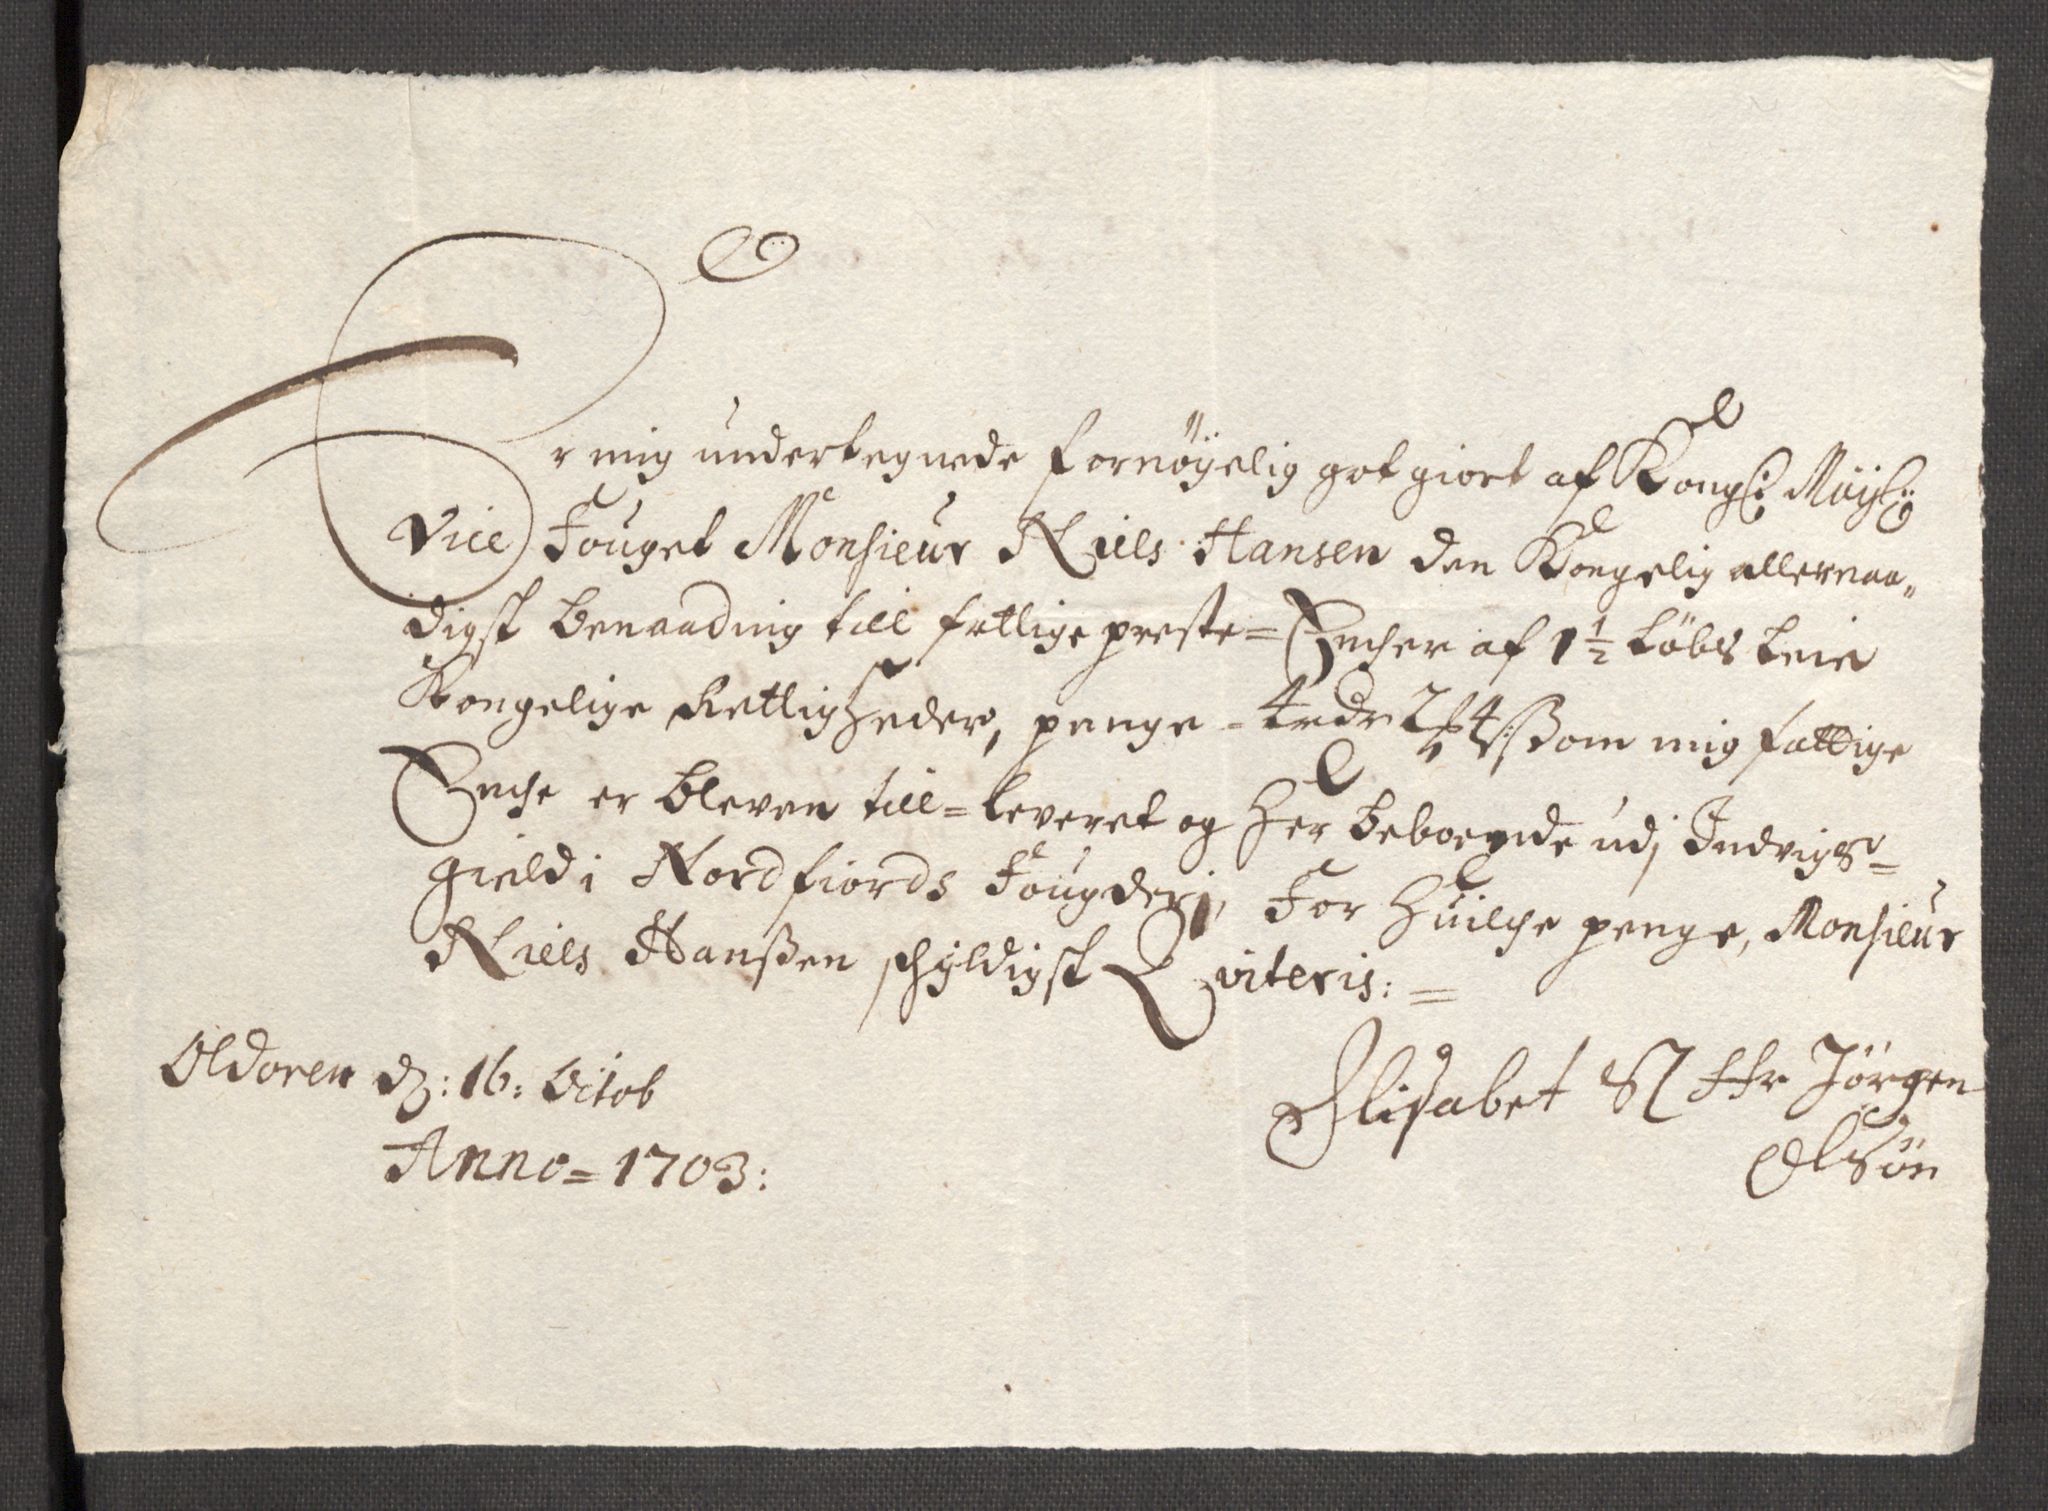 Er mig undertegnede fornöyelig got giort af Kongl: Mayts:
Vice Fouget Monsieur Niels Hansen den Kongelig allernaa-
digst benaading till fattige preste-Encher af 1½ Löbs Leie
Kongelige Rettigheder, penge - 4 rdr 2 mk 4 s: Som mig fattige
Enche er bleven till-leveret og her beboende udj Indvigs-
gield i Nordfiords Fougderj, For huilche penge, Monsieur
Niels Hanßen schyldigst Qviteris:=
Oldoren d: 16: Octob
Anno = 1703:
Elisabet Sl Hr Jörgen
OlSön